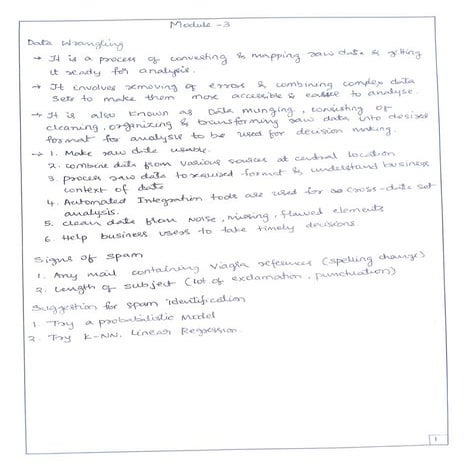 Module - 3
Data Wrangling
→ It is a process of converting & mapping raw data & getting
it ready for analysis.
→ It involves removing of errors & combining complex data
sets to make them more accessible & easier to analyse.
→ It is also known as Data munging, consisting of
cleaning, organizing & transforming raw data into desired
format for analysis to be used for decision making.
→ 1. Make raw data usable.
2. combine data from various sources at central location
3. process raw data to required format & understand business
context of data
4. Automated Integration tools are used for cross-data set
analysis.
5. clean data from Noise, missing, flawed elements
6. Help business users to take timely decisions.
Signs of spam
1. Any mail containing Viagra references (spelling change)
2. Length of subject (lot of exclamation, punctuation)
Suggestion for spam Identification
1. Try a probabilistic Model
2. Try K-NN, Linear Regression.
1